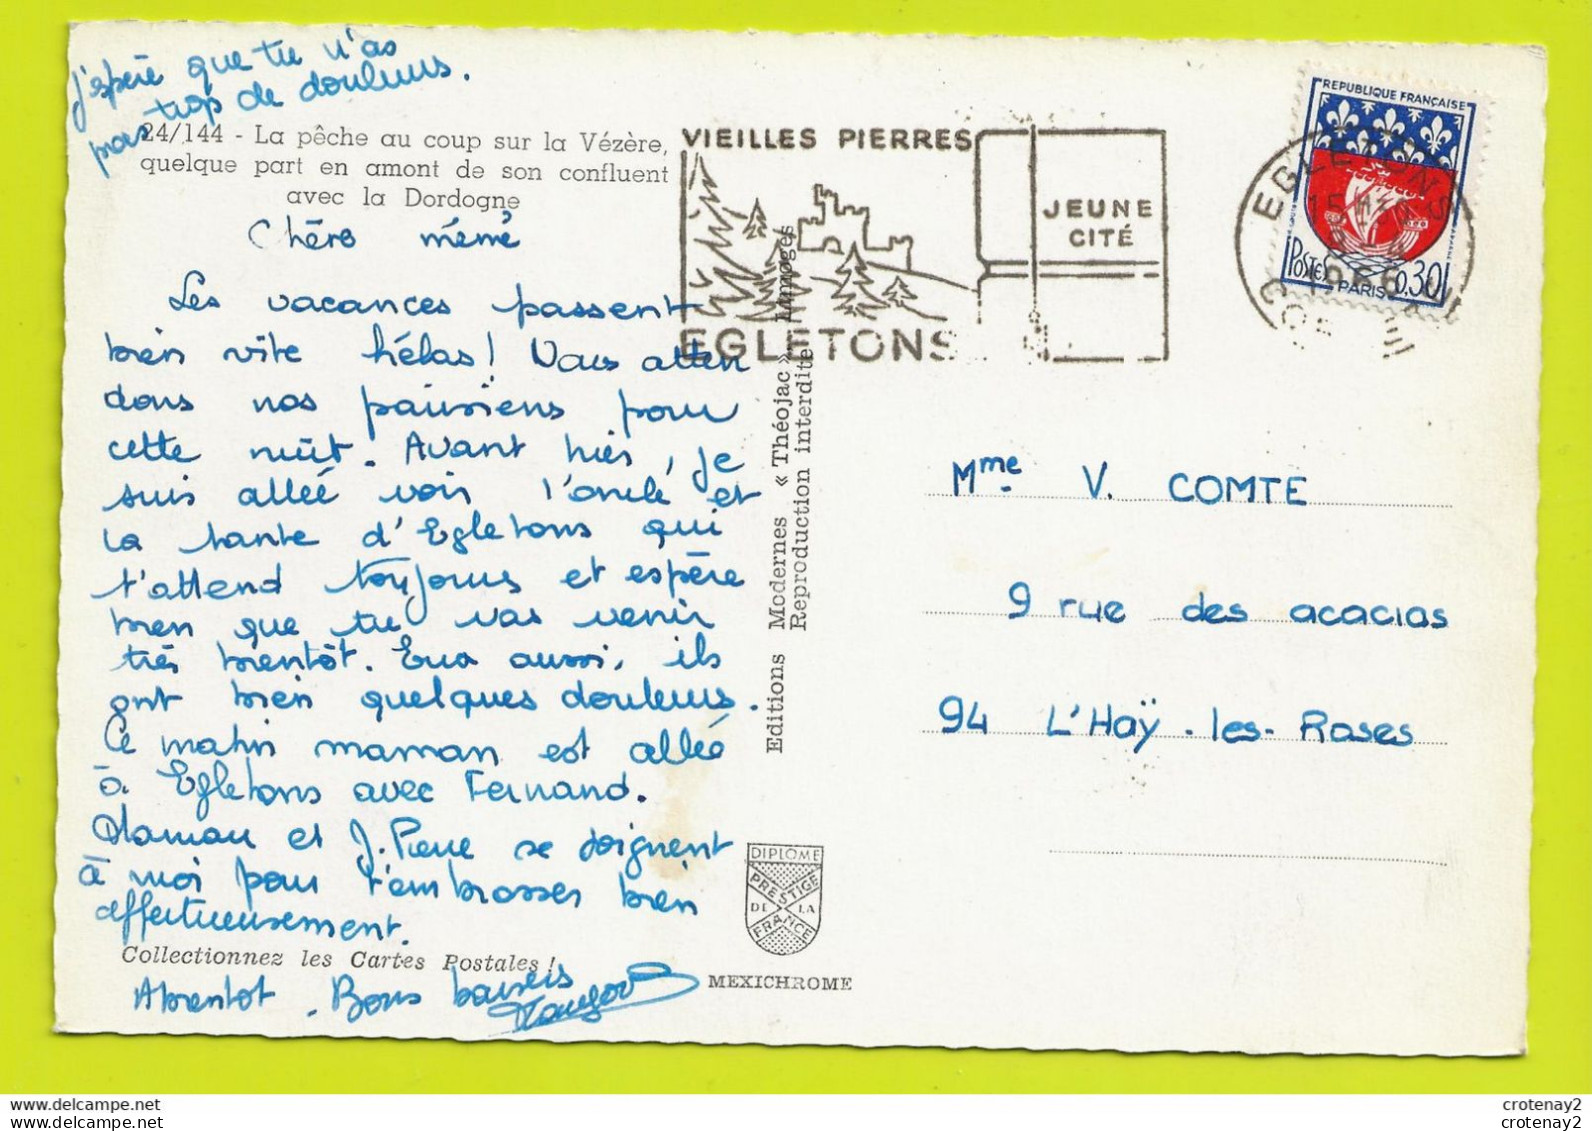 j'espère que tu n'as
pas trop de douleurs.
24/144 - La pêche au coup sur la Vézère,
quelque part en amont de son confluent
avec la Dordogne
Chère mémé
Les vacances passent
bien vite hélas! Nous atten
dons nos parisiens pour
cette nuit. Avant hier, je
suis allée voir l'oncle et
la tante d'Egletons qui
t'attend toujours et espère
bien que tu vas venir
très bientôt. Eux aussi, ils
ont bien quelques douleurs.
Ce matin maman est allée
à Egletons avec Fernand.
Maman et J. Pierre se joignent
à moi pour t'embrasser bien
affectueusement.
Collectionnez les Cartes Postales !
A bientôt. Bons baisers
Editions Modernes « Théojac » Limoges
Reproduction interdite
DIPLOME
PRESTIGE
DE LA
FRANCE
MEXICHROME
VIEILLES PIERRES
JEUNE
CITÉ
EGLETONS
REPUBLIQUE FRANÇAISE
POSTES
0,30
PARIS
EGLETONS
Mme V. COMTE
9 rue des acacias
94 L'Haÿ-les-Roses
crotenay2
crotenay2